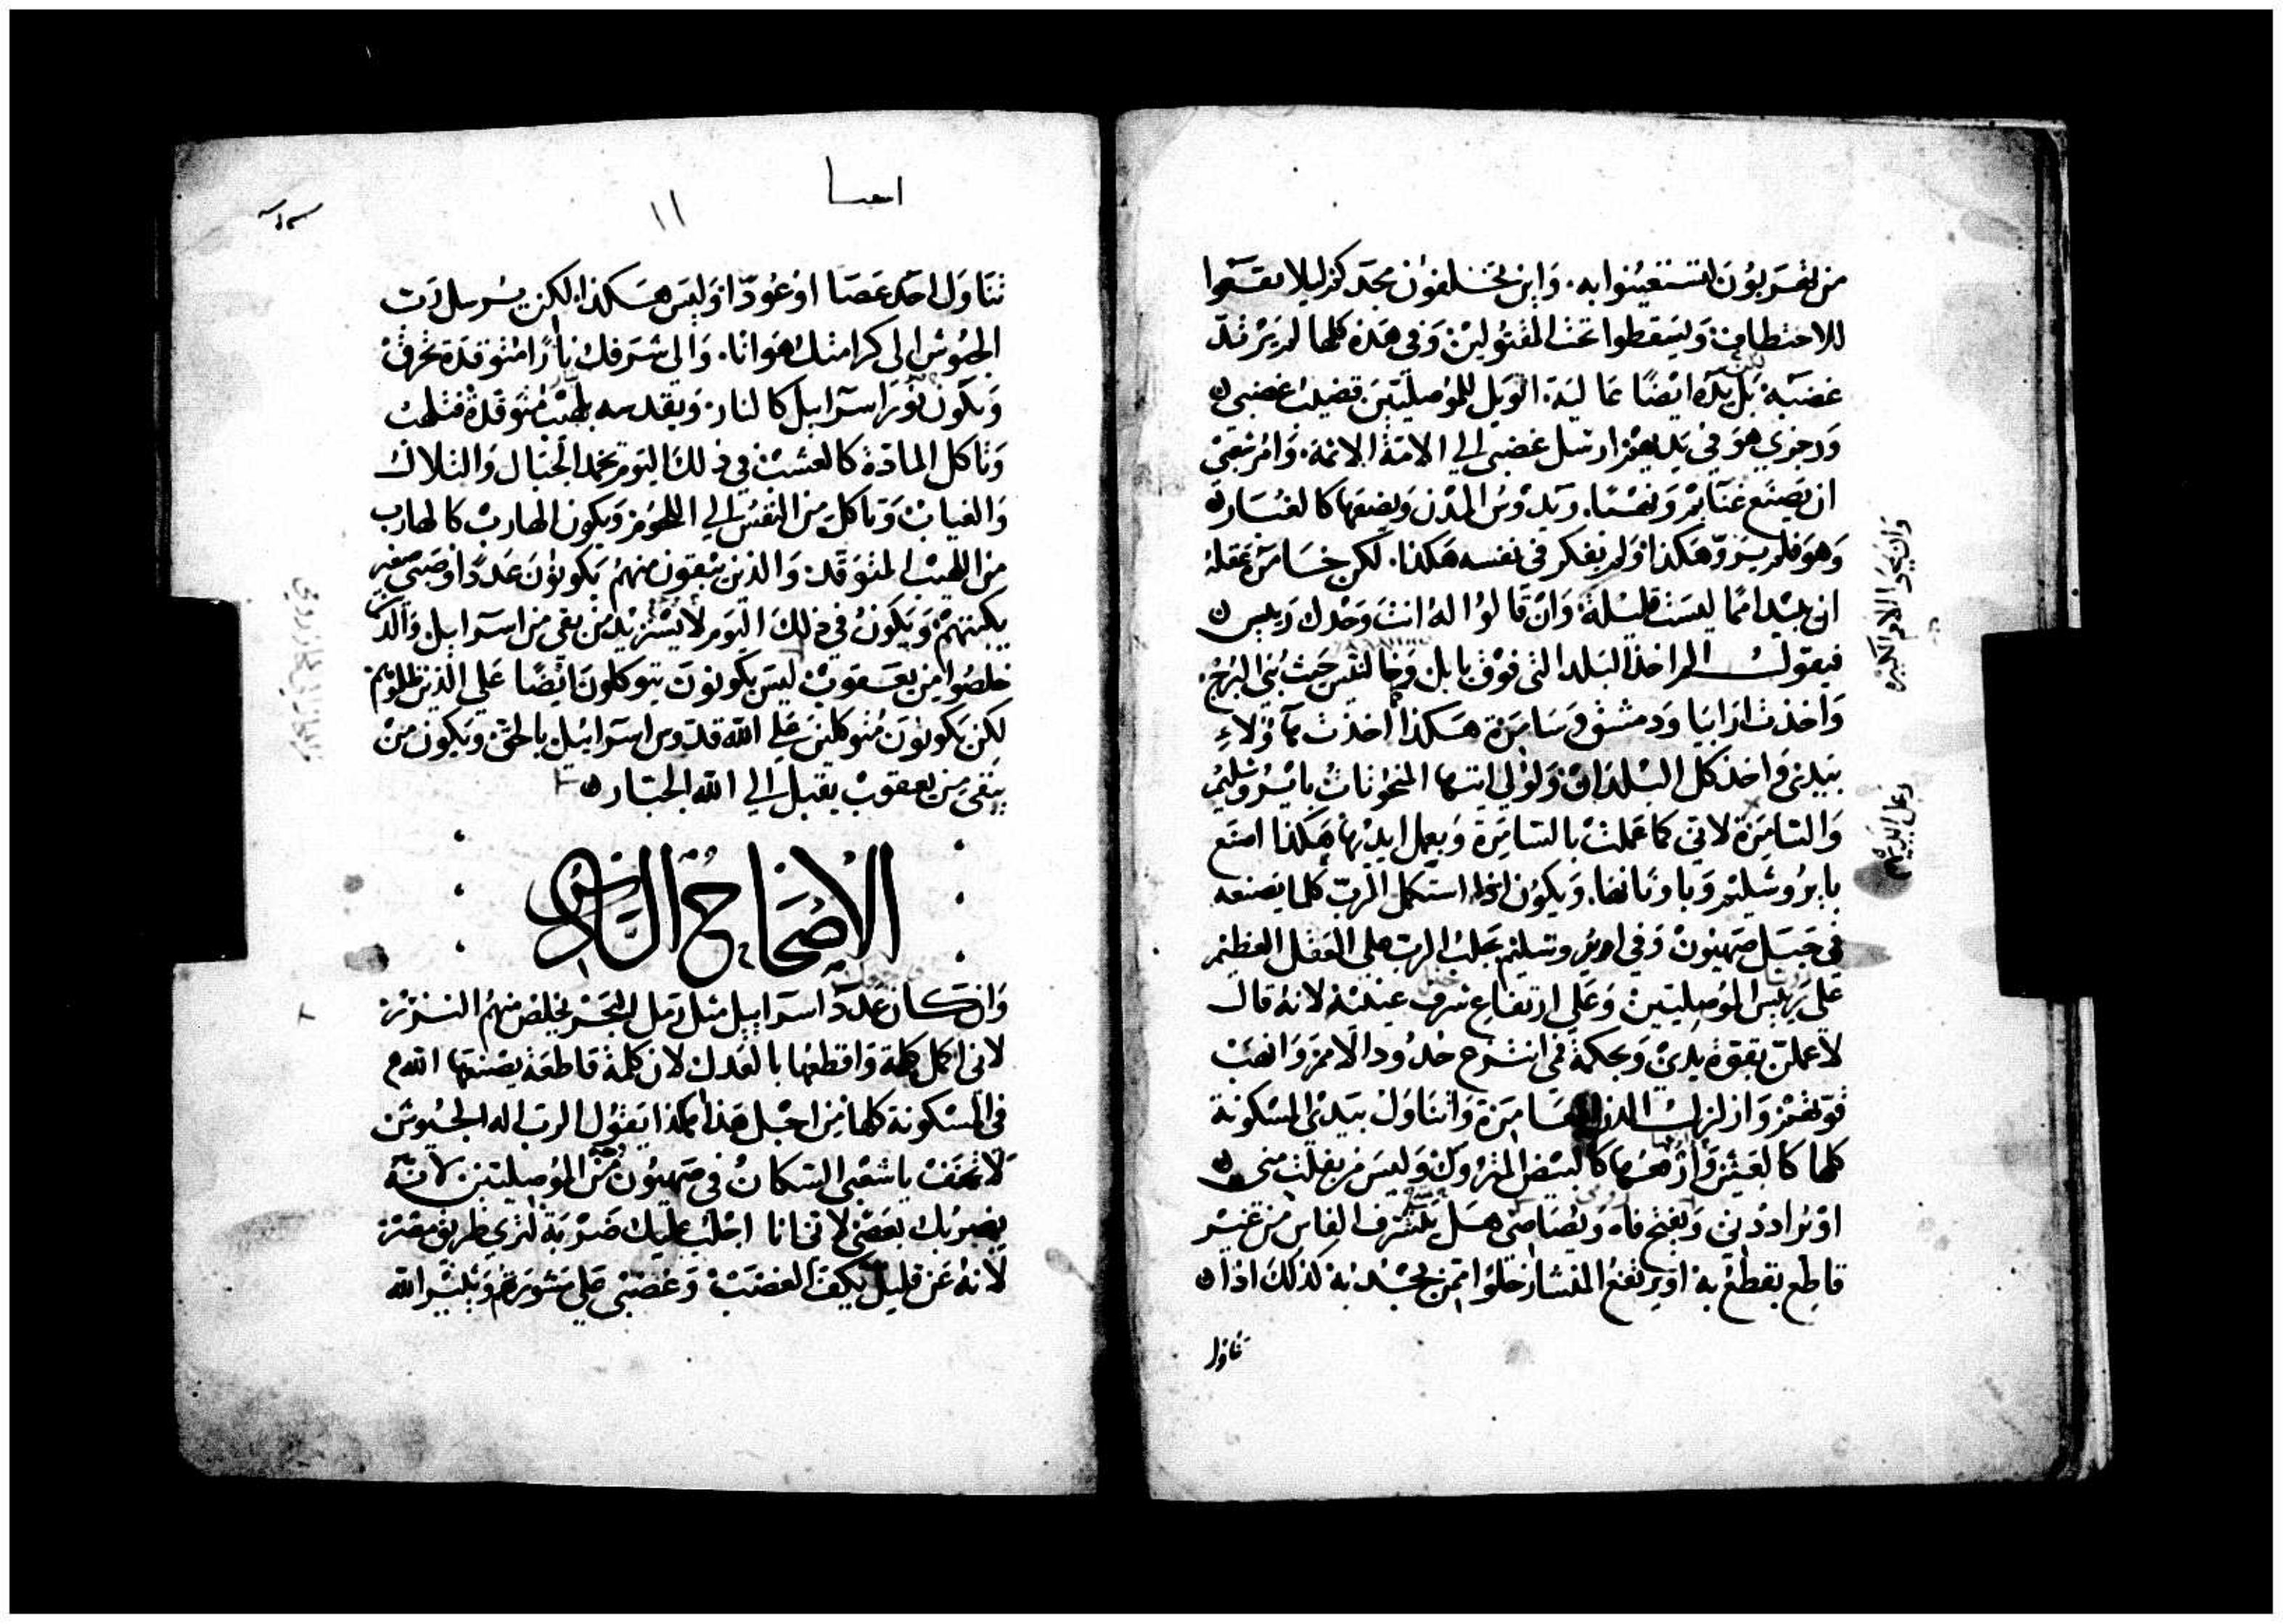 من تهربون لتستغيثوا به. واين تخلفون مجدكم ليلا تقعوا
للاختطاف ويسقطوا تحت المقتولين وفي هذه كلها لم يرتد
غضبه بل يده ايضا عالية. الويل للموصليين قضيب غضبي
ورجزي هو في يديهم ارسل غضبي الي الامة الاثمة. وامر شعبي
ان يصنع غنايم ونهبا. ويدوس المدن ويضعها كالغبار
وهو فلم ينو هكذا ولم يفكر في نفسه هكذا. لكن
ان يبيد امما ليست قليلة وان قالوا له انت وحدك رييس
فيقول الم اخذ البلد التي فوق بابل وخالنيس حيث بني البرج.
واخذت ارابيا ودمشق وسامرة هكذا اخذت هاولاء
بيدي واخذ كل البلدان ولولي ايتها المنحوتات بايروشليم
والسامرة لاني كما عملت بالسامرة وبعمل ايديها هكذا اصنع
بايروشليم وباوثانها. ويكون اذا استكمل الرب كلما يصنعه
في جبل صهيون وفي ايروشليم يجلب الرب علي العقل العظيم
علي رييس الموصليين وعلي ارتفاع شرف عينيه لانه قال
لاعملن بقوة يدي وبحكمة في انتزع حدود الامم وانهب
قوتهم وازلزل المدن العامرة واتناول بيدي المسكونة
كلها كالعش وارفعها كالبيض المتروك وليس من يفلت مني
او يراددني ويفتح فاه ويصاصي هل يتشرف الفاس من غير
قاطع يقطع به او يرتفع المنشار خلوا ممن يجبذبه كذلك اذا
تناول
وان نحوا الامر الكبيره
اشعيا
١١
تناول احد عصا او عودا وليس هكذا لكن يرسل رب
الجيوش الي كرامتك هوانا. والي شرفك نارا متوقدة تحرق
ويكون نور اسراييل كالنار. ويقدسه بلهيب متوقدة فتلهب
وتاكل المادة كالعشب في ذلك اليوم تخمد الجبال والتلال
والغياب وتاكل من النفس الي اللحوم ويكون الهارب كالهارب
من اللهيب المتوقد. والذين يبقون منهم يكونون عددا وصبي صغير
يكتبهم ويكون في ذلك اليوم لا يستزيد من بقي من اسراييل والذين
خلصوا من يعقوب ليس يكونون يتوكلون ايضا علي الذين ظلموهم
لكن يكونون متوكلين علي الله قدوس اسراييل بالحق ويكون من
يبقي من يعقوب يقبل الي الله الجبار
الاصحاح السادس
وان كان عدد اسراييل مثل رمل البحر يخلص منهم النزر
لاني اكمل كلمة واقطعها بالعدل لان كلمة قاطعة يصنعها الله
في المسكونة كلها من اجل هذا هكذا يقول الرب اله الجيوش
لا تخف يا شعبي السكان في صهيون من الموصليين لانه
يضربك بعصي لاني انا اجلب عليك ضربة لتري طريق مصر
لانه عن قليل يكف الغضب وغضبي علي مشورتهم ويثير الله